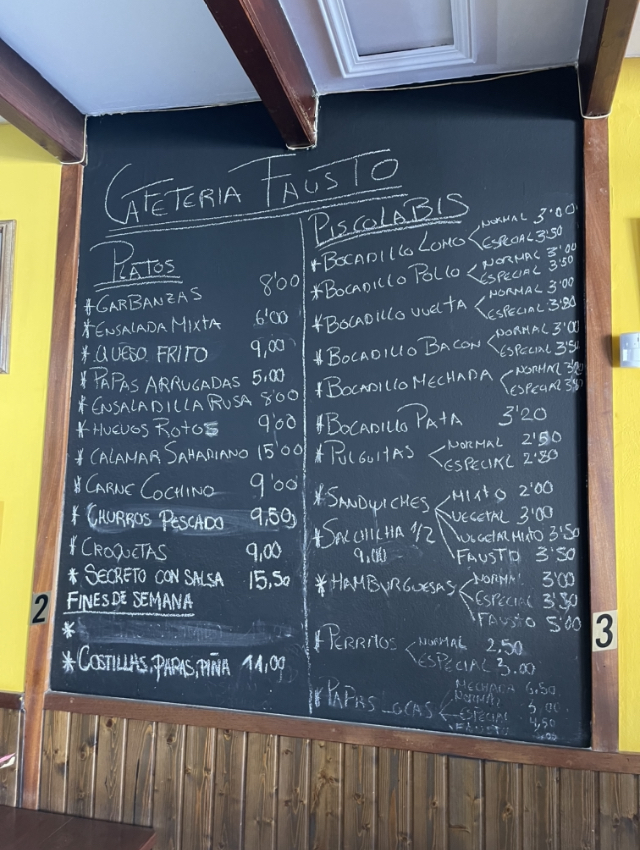 CAFETERIA FAUSTO
PLATOS
*GARBANZAS 8'00
*ENSALADA MIXTA 6'00
*QUESO FRITO 9,00
*PAPAS ARRUGADAS 5,00
*ENSALADILLA RUSA 8'00
*HUEVOS ROTOS 9'00
*CALAMAR SAHARIANO 15'00
*CARNE COCHINO 9'00
*CHURROS PESCADO 9,50
*CROQUETAS 9,00
*SECRETO CON SALSA 15,50
FINES DE SEMANA
*
*COSTILLAS, PAPAS, PIÑA 11,00
2
PISCOLABIS
*BOCADILLO LOMO NORMAL 3'00
ESPECIAL 3'50
*BOCADILLO POLLO NORMAL 3'00
ESPECIAL 3'50
*BOCADILLO VUELTA NORMAL 3'00
ESPECIAL
*BOCADILLO BACON NORMAL 3'00
ESPECIAL 3'50
*BOCADILLO MECHADA NORMAL
ESPECIAL
*BOCADILLO PATA 3'20
*PULGUITAS NORMAL 2'50
ESPECIAL 2'80
*SANDWICHES MIXTO 2'00
VEGETAL 3'00
VEGETAL MIXTO 3'50
FAUSTO 3'50
*SALCHICHA 1/2
9,00
*HAMBURGUESAS NORMAL 3'00
ESPECIAL
FAUSTO 5'00
*PERRITOS NORMAL 2,50
ESPECIAL 3.00
*PAPAS LOCAS MECHADA 6,50
NORMAL
ESPECIAL 4,50
FAUSTO
3